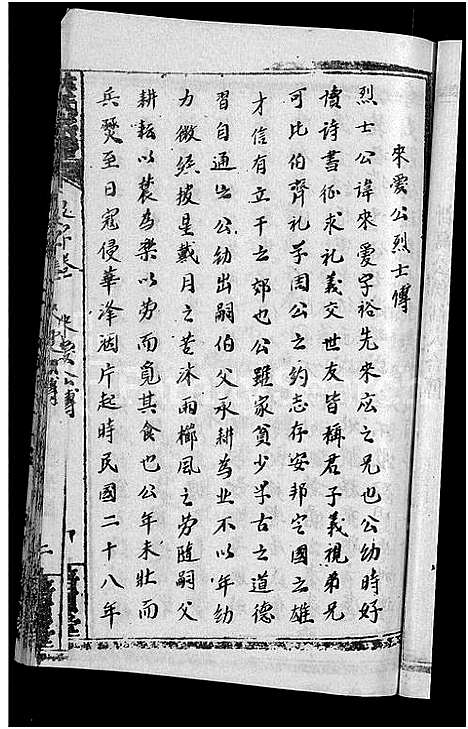 來爱公烈士傳
烈士公諱來爱字裕先來应之兄也公幼時好
讀詩書征求礼義交世友皆稱君子義視弟兄
可比伯齊礼学周公之約志存安邦定國之雄
才信有立干之郊也公雖家貧少学古之道德
習自通出公幼出嗣伯父承耕為业不以年幼
力微須披星戴月之苦沐雨櫛風之劳随嗣父
耕耘以裁為樂以劳而覓其食也公年未壮而
兵燹至日寇侵華泽烟片起時民國二十八年
來爱公傳